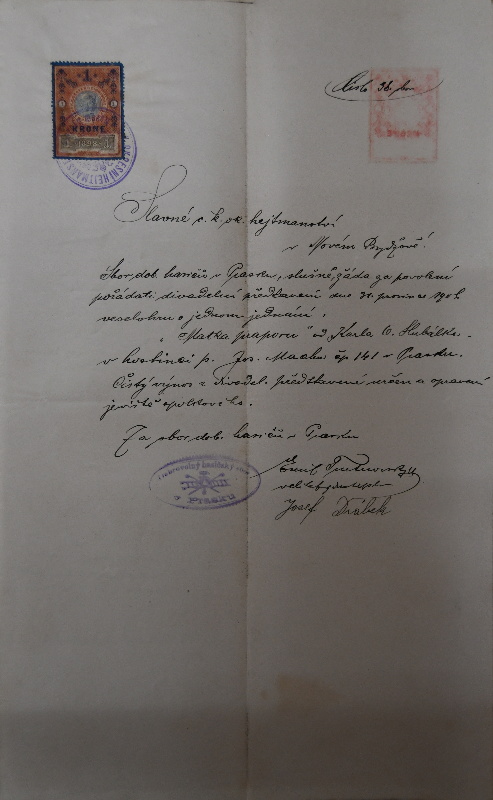 1
KRONE
1898
Číslo 38.
Slavné c. k. ok. hejtmanství
v Novém Bydžově!
Sbor dob. hasičů v Prasku, slušně žádá za povolení
pořádati divadelní představení dne 31. prosince
veselohru o jednom jednání,
"Matka praporu" od Karla
v hostinci p. Jos. čp 141 v Prasku.
Čistý výnos z divadel. představení určen a opravení
jeviště spolkového.
Za sbor dob. hasičů v Prasku
Emil
Josef Drábek
v Prasku